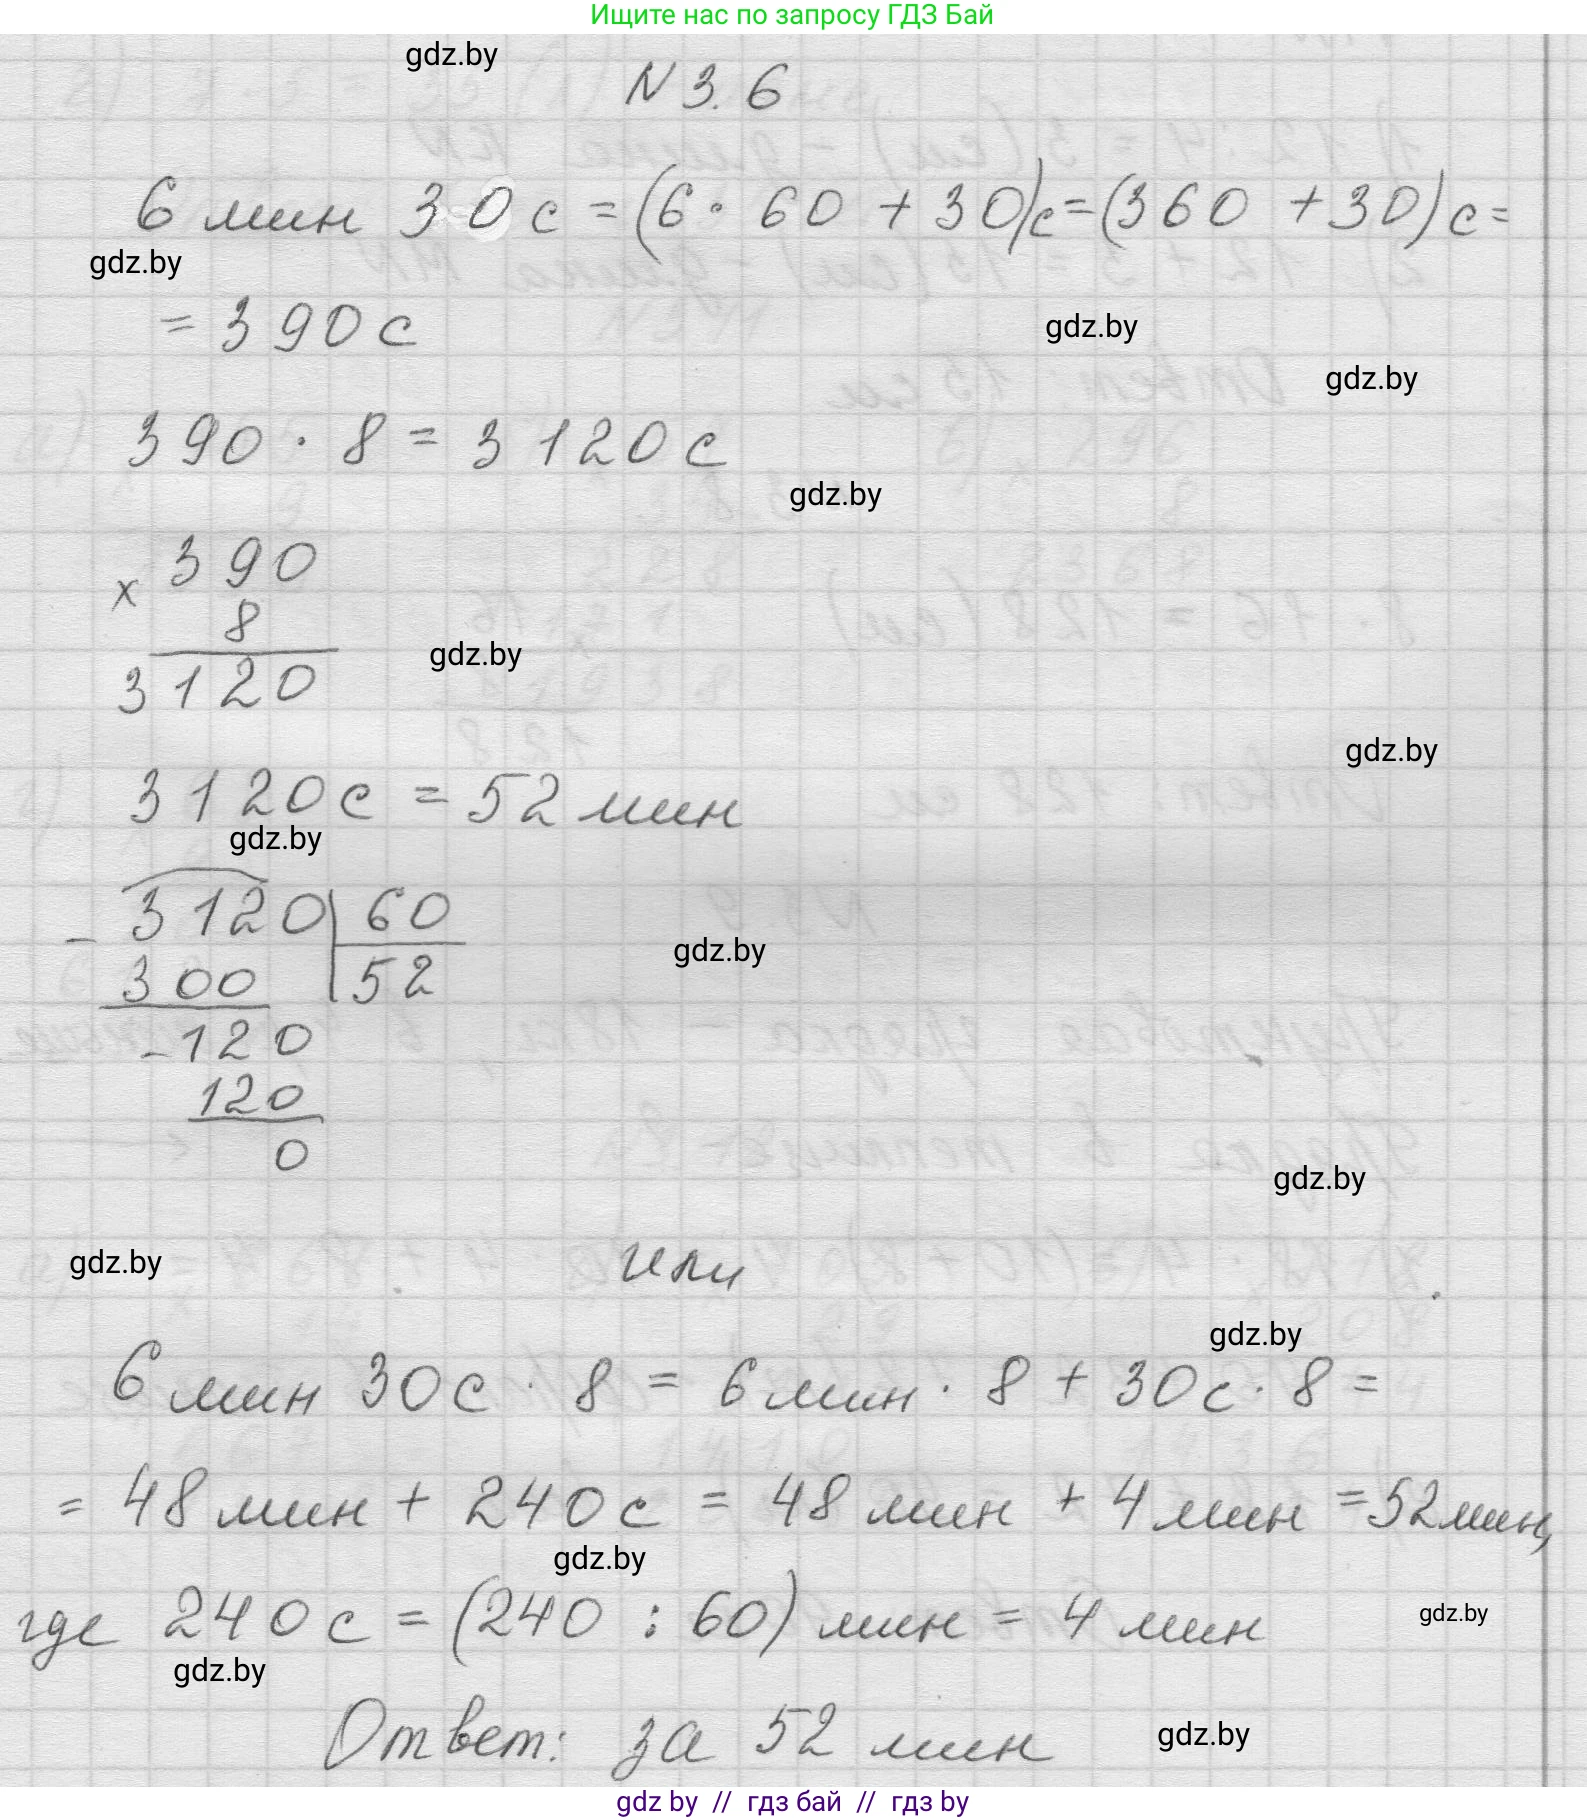 Ищите нас по запросу ГДЗ Бай
gdz.by
N 3.6
6 мин 30 с = (6 · 60 + 30)с = (360 + 30) с =
gdz.by
= 390 с
gdz.by
gdz.by
390 · 8 = 3120 с
gdz.by
x 390
8
gdz.by
3120
gdz.by
3120 с = 52 мин
gdz.by
- 3120 | 60
gdz.by
300 | 52
- 120
120
0
gdz.by
gdz.by
или
gdz.by
6 мин 30 с · 8 = 6 мин · 8 + 30 с · 8 =
= 48 мин + 240 с = 48 мин + 4 мин = 52 мин,
gdz.by
где 240 с = (240 : 60) мин = 4 мин
gdz.by
gdz.by
Ответ: за 52 мин
gdz.by
gdz by // гдз бай // гдз by